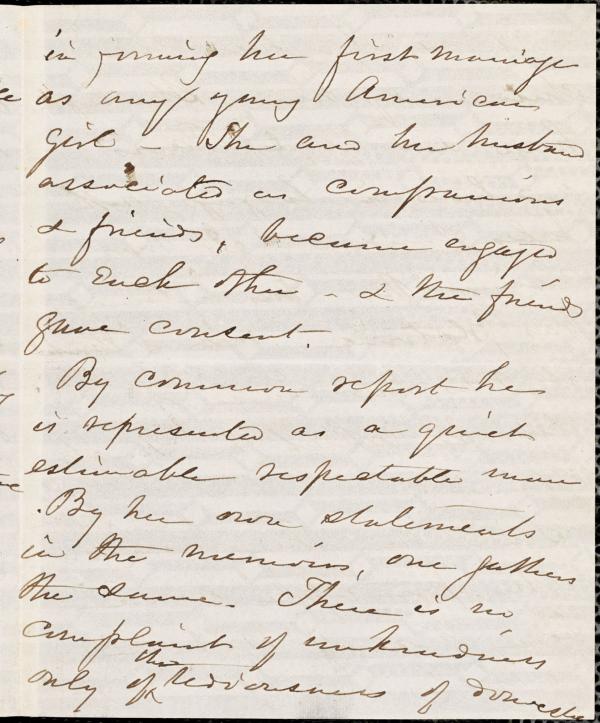 in forming her first marriage
as any young American
girl – She and her husband
associated as companions
& friends, became engaged
to Each other – & the friends
gave consent.
By common report he
is represented as a quiet
estimable respectable man
. By her own statements
in the memoirs, one gathers
the same. There is no
complaint of unkindness
only of the tediousness of domestic